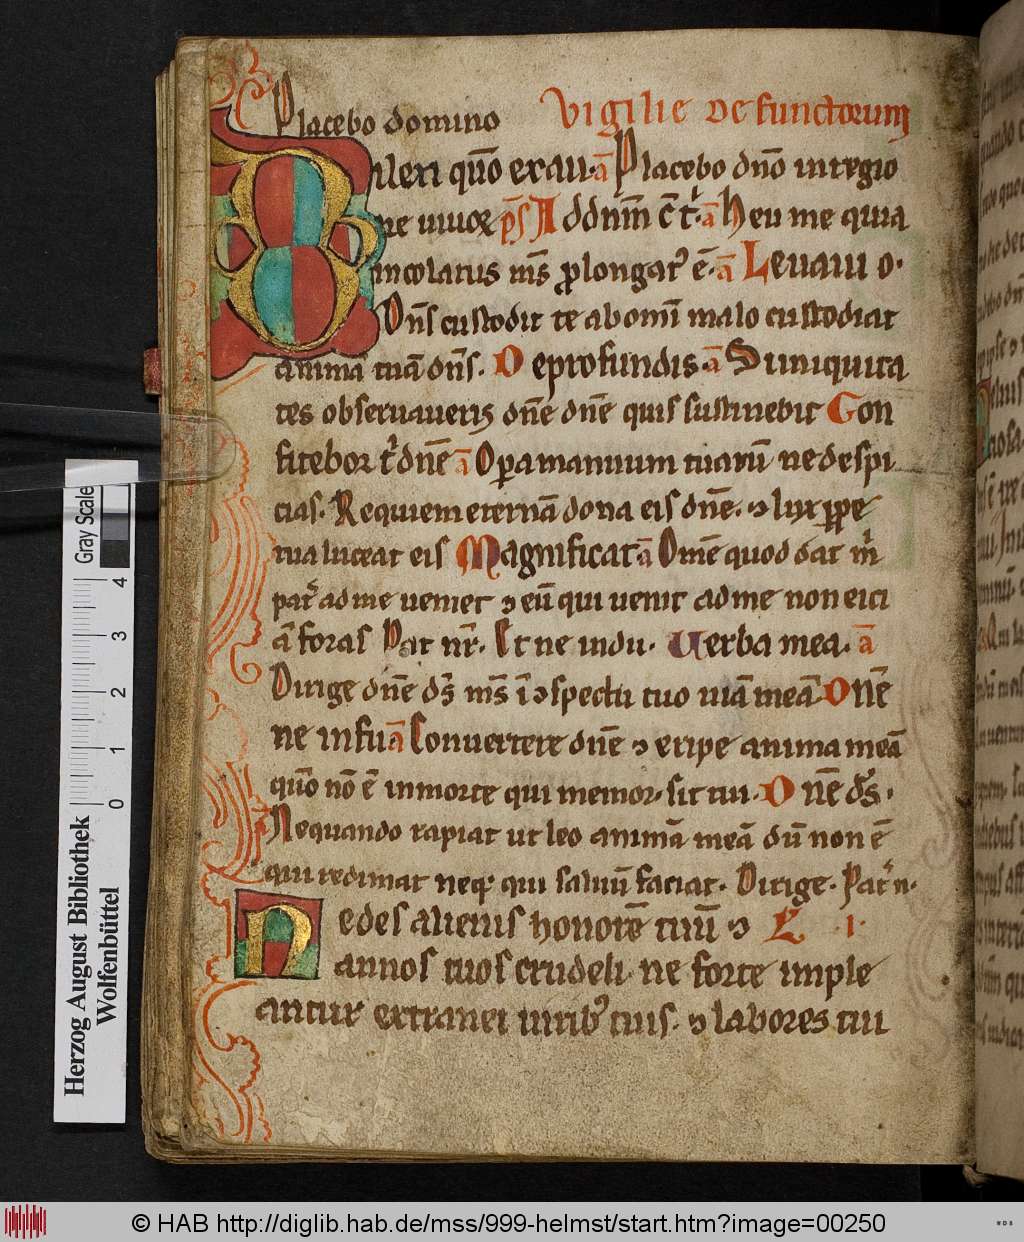 Placebo domino Vigilie Defunctorum
Dilexi quō exau. ā Placebo dn̄o in regio
ne uiuoꝝ p̄s Ad dn̄m c̄ t͛. ā Heu me quia
incolatus m̄s ꝓlongat᷒ ē. ā Leuaui o.
Dn̄s custodit te ab om̄i malo custodiat
animā tuā dn̄s. De profundis. ā Si iniquita
tes obseruaueris dn̄e dn̄e quis sustinebit Con
fitebor t' dn̄e ā Opera manuum tuarū ne despi
cias. Requiem eternā dona eis dn̄e. ⁊ lux ꝑpe
tua luceat eis Magnificat ā Om̄e quod dat m'
pat͛ ad me ueniet ⁊ eū qui uenit ad me non eici
ā foras Pat nr̄. Et ne indu. Uerba mea. ā
Dirige dn̄e d̄s m̄s ī ꝯspectu tuo uiā meā. Dn̄e
ne in fu ā Conuertere dn̄e ⁊ eripe animā meā
quō nō ē in morte qui memor. sit tui. Dn̄e d̄s.
Nequando rapiat ut leo animā meā dū non ē
qui redimat neq; qui saluū faciat. Dirige. Pat͛ n.
Nedes alienis honorē tuū ⁊ L. I.
annos tuos crudeli. ne forte imple
antur extranei uirib᷒ tuis. ⁊ labores tui
Gray Scale
4
3
2
1
0
Herzog August Bibliothek
Wolfenbüttel
© HAB http://diglib.hab.de/mss/999-helmst/start.htm?image=00250